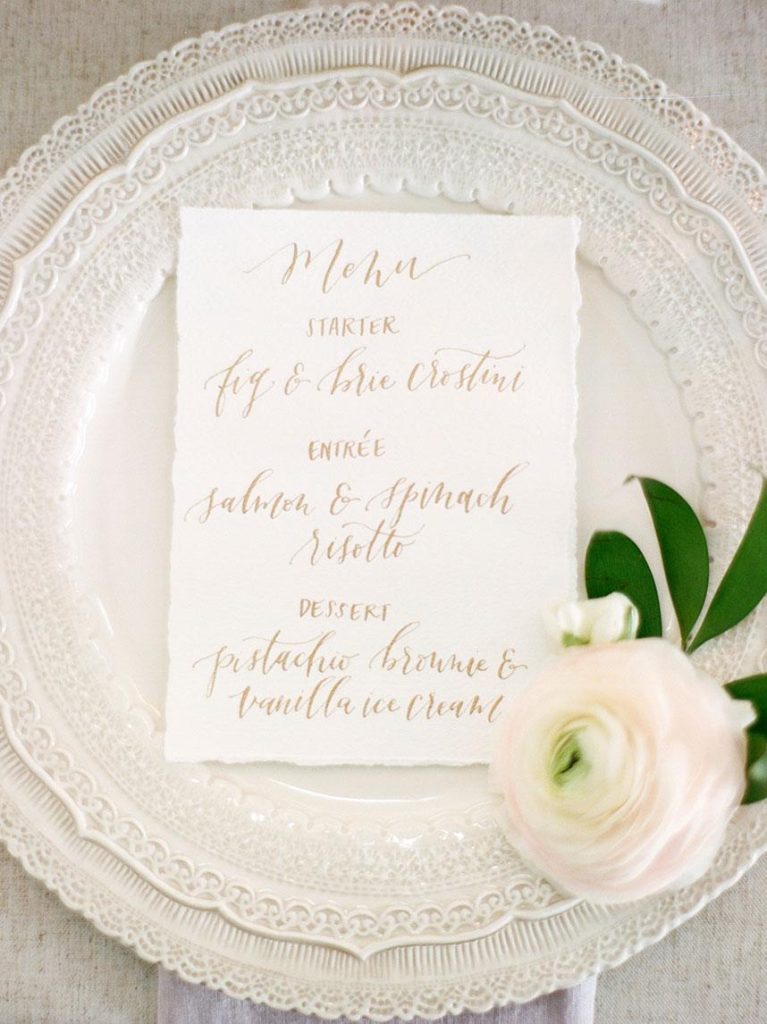 Menu
STARTER
fig & brie crostini
ENTRÉE
salmon & spinach
risotto
DESSERT
pistachio brownie &
vanilla ice cream